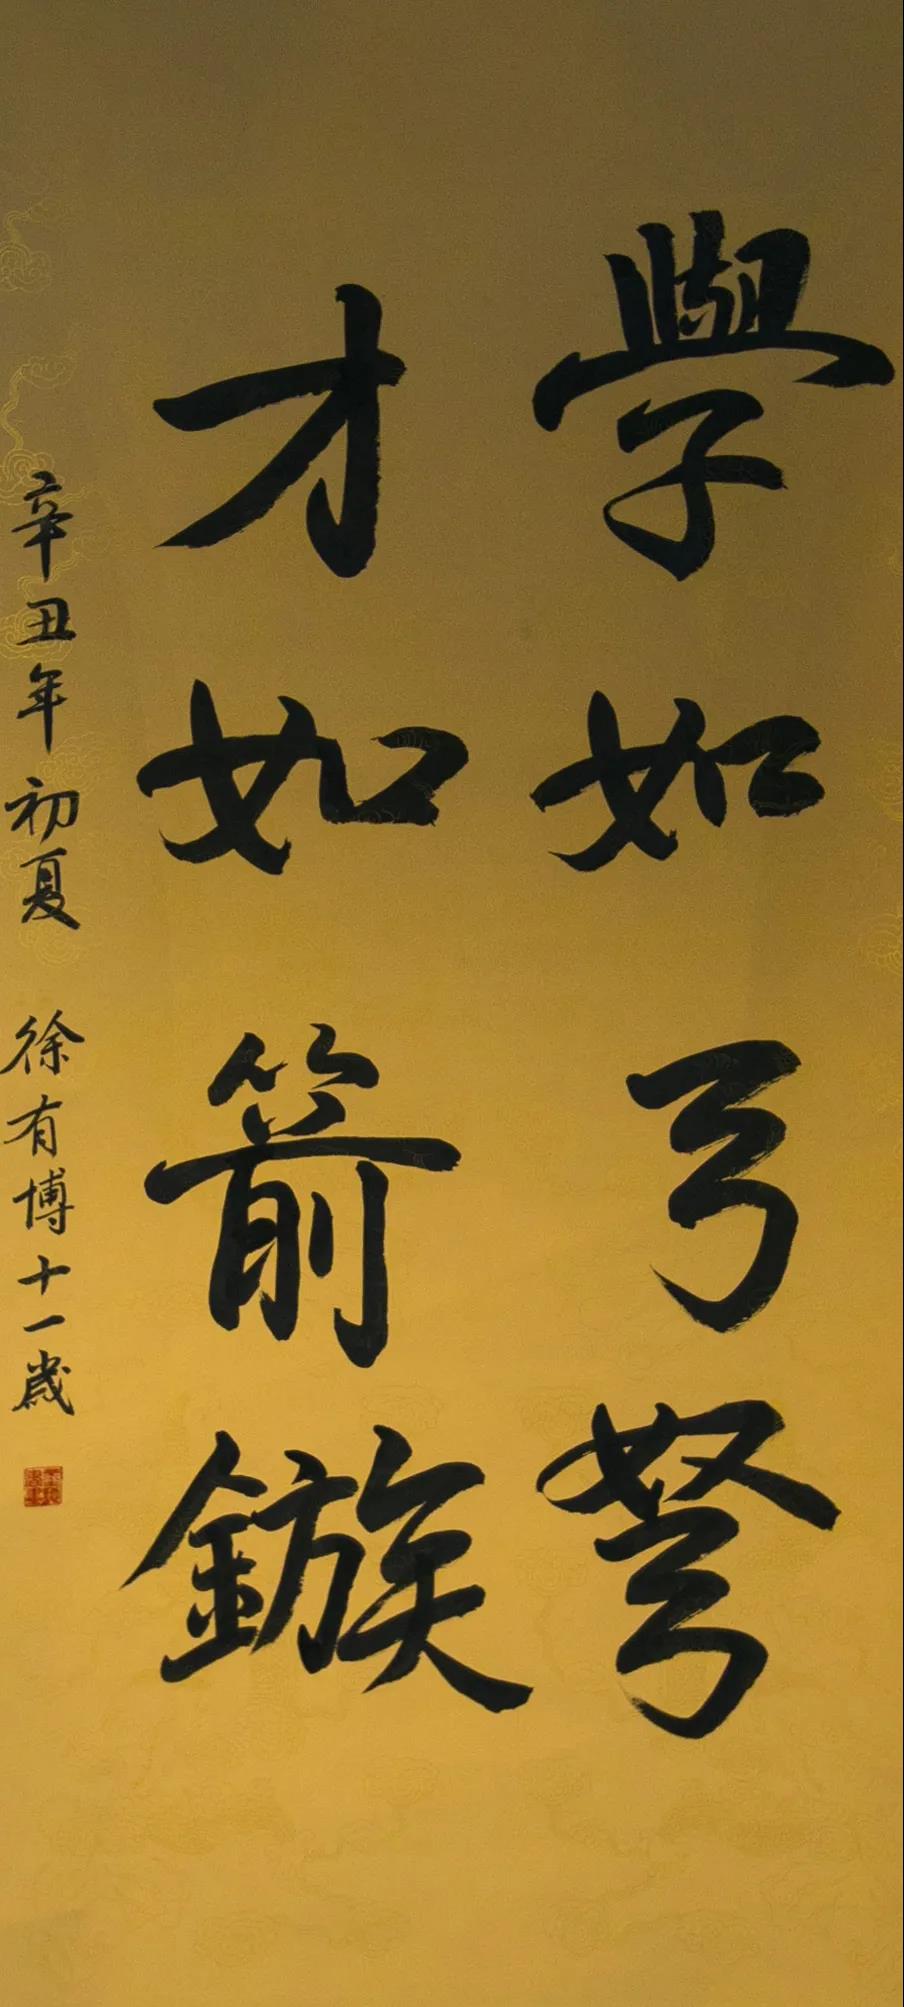 學如弓弩
才如箭鏃
辛丑年初夏 徐有博十一歲